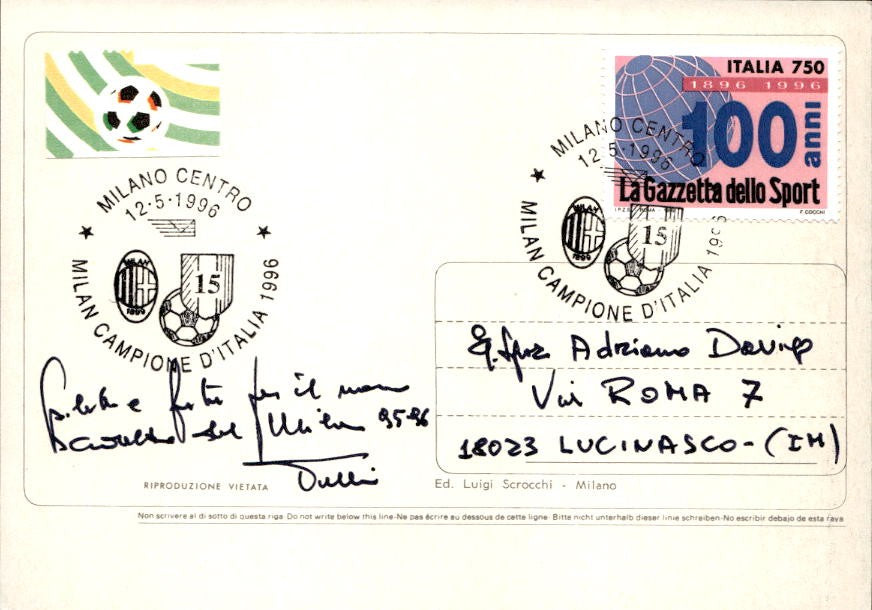 ITALIA 750
1896 1996
100 anni
La Gazzetta dello Sport
I.P.Z.S. ROMA
F. COCCHI
MILANO CENTRO
12·5·1996
MILAN
1899
15
MILAN CAMPIONE D'ITALIA 1996
MILANO CENTRO
12·5·1996
MILAN
1899
15
MILAN CAMPIONE D'ITALIA 1996
per il
del Milan 95-96
Adriano
Via ROMA 7
18023 LUCINASCO - (IM)
RIPRODUZIONE VIETATA
Ed. Luigi Scrocchi - Milano
Non scrivere al di sotto di questa riga-Do not write below this line-Ne pas écrire au dessous de cette ligne-Bitte nicht unterhalb dieser linie schreiben-No escribir debajo de esta raya